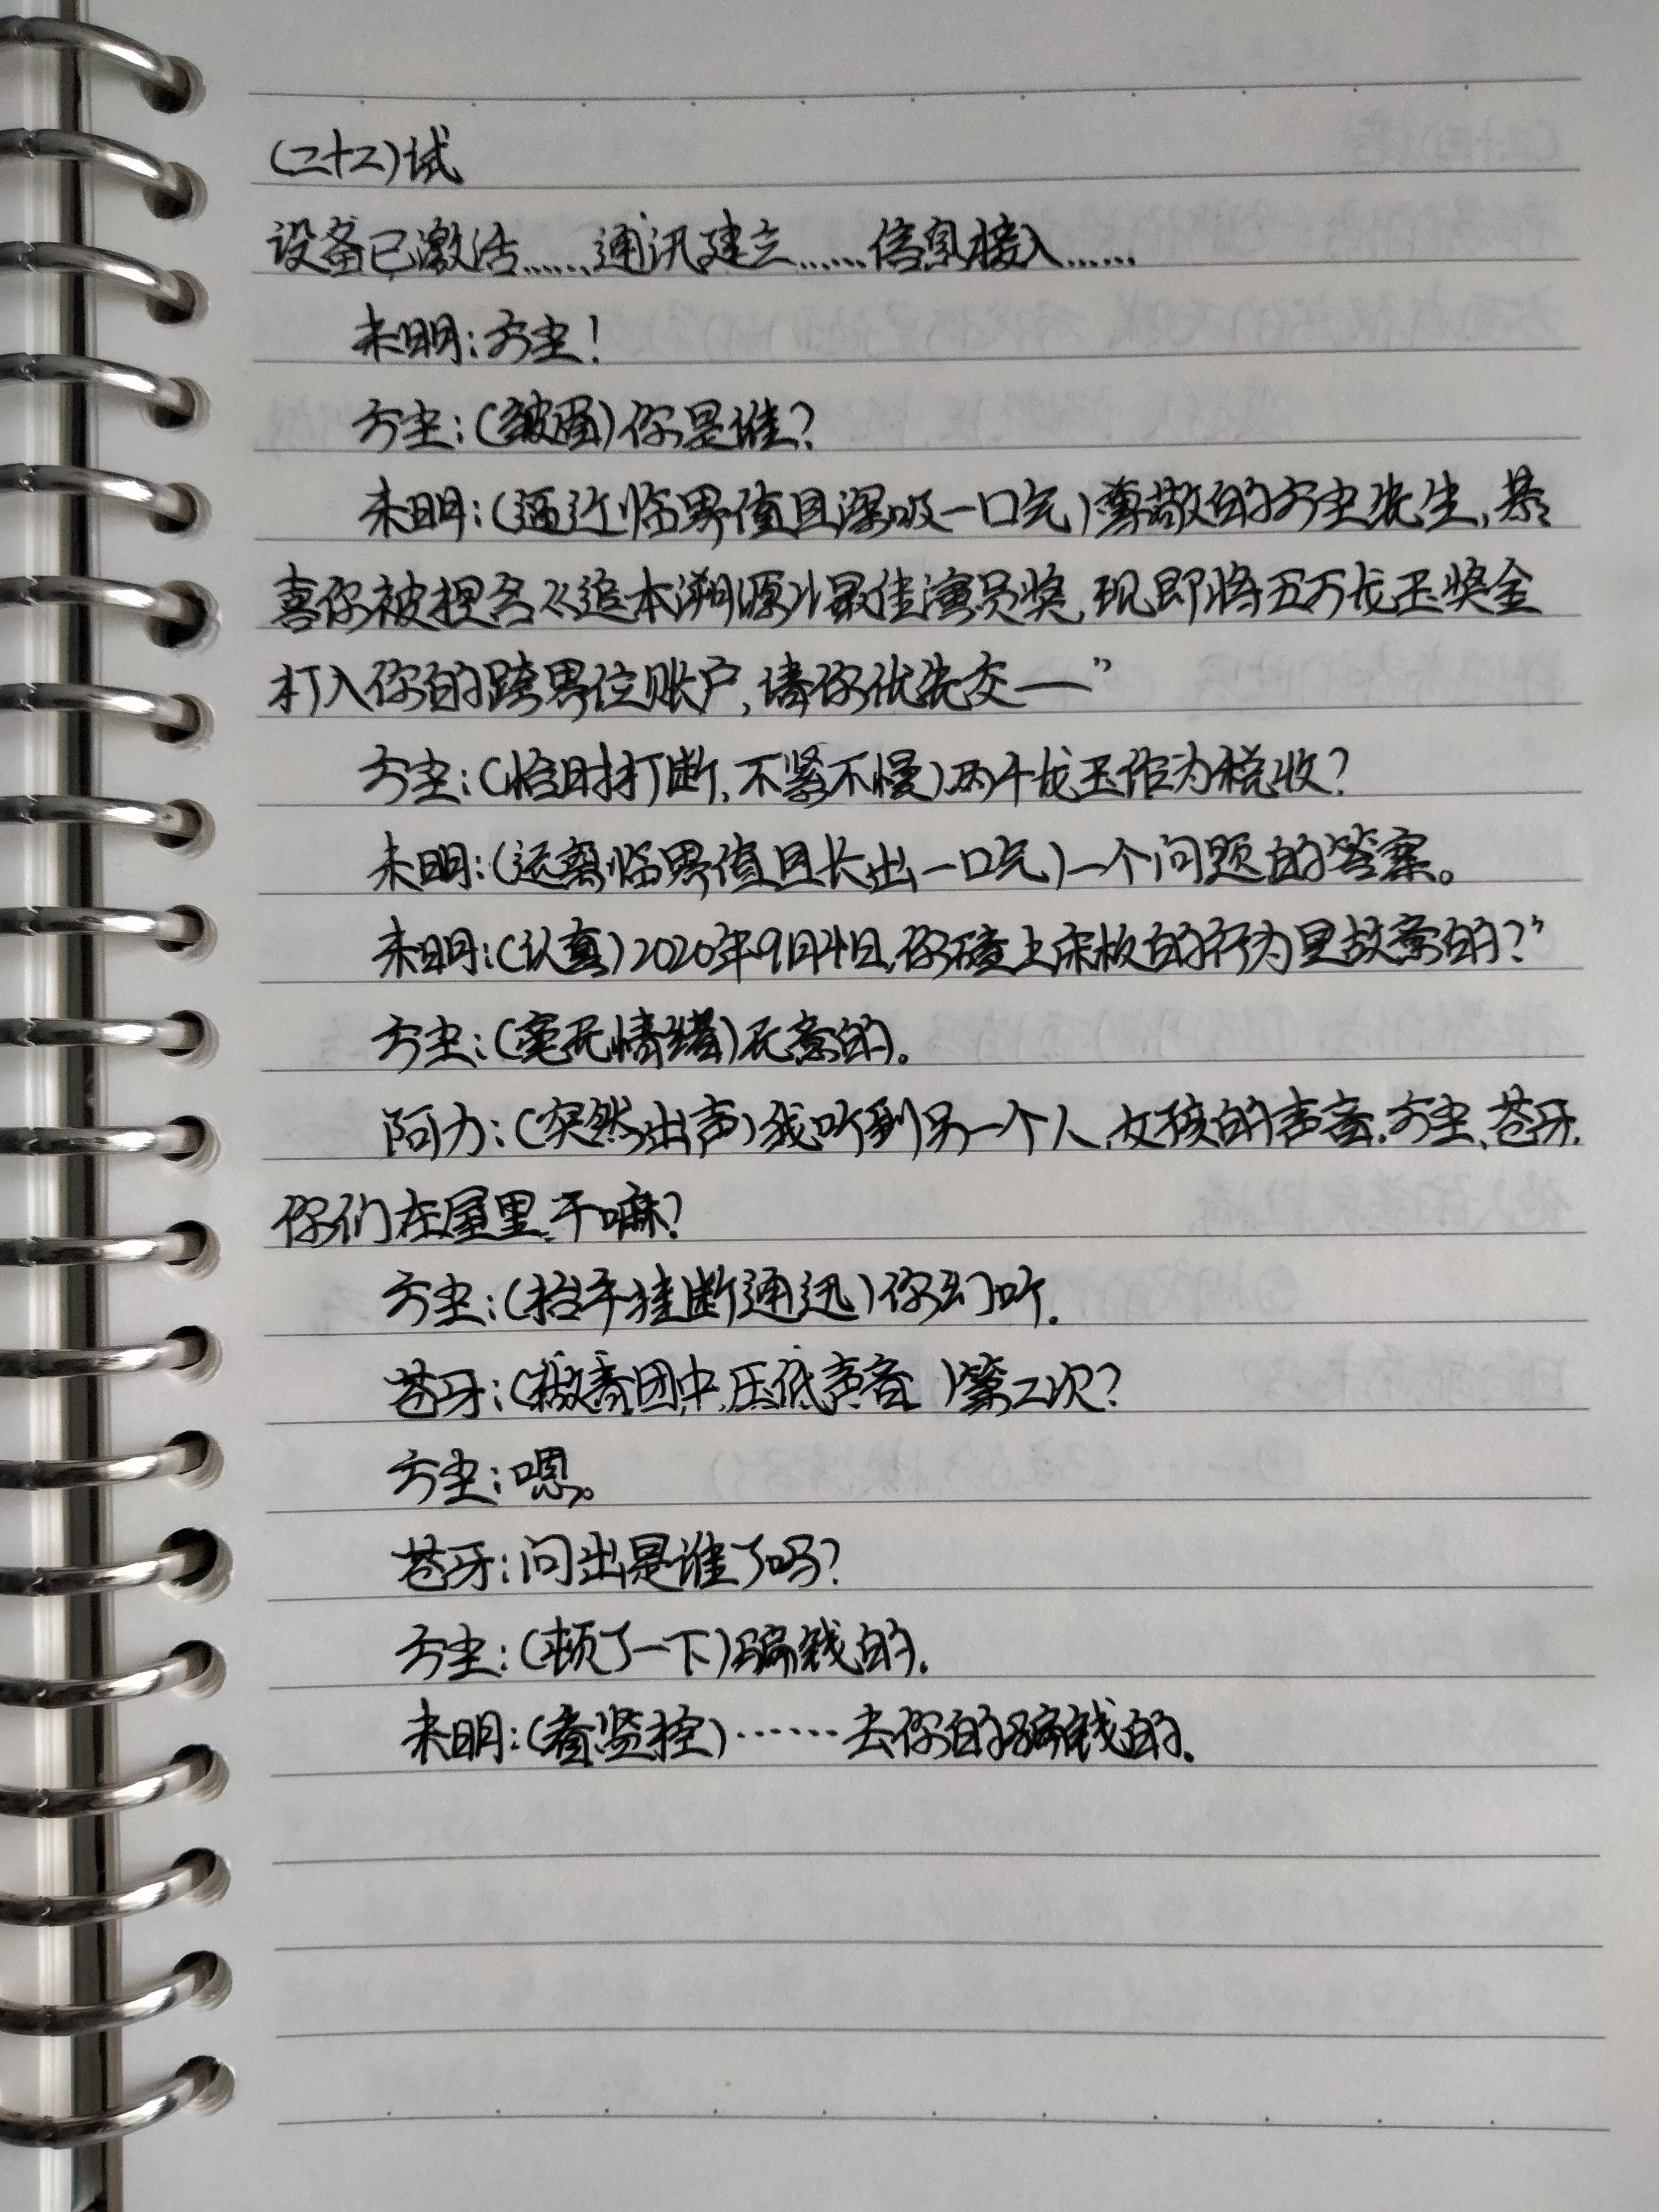 (二十二)试
设备已激活……通讯建立……信息接入……
未明:方尘!
方尘:(皱眉)你是谁?
未明:(逼近临界值且深吸一口气)尊敬的方尘先生,恭
喜你被提名《追本溯源》最佳演员奖,现即将五万龙玉奖金
打入你的跨界位账户,请你优先交——”
方尘:(恰时打断,不紧不慢)两千龙玉作为税收?
未明:(远离临界值且长出一口气)一个问题的答案。
未明:(认真)2020年9月4日,你碰上床板的行为是故意的?”
方尘:(毫无情绪)无意的。
阿力:(突然出声)我听到另一个人,女孩的声音.方尘、苍牙,
你们在屋里干嘛?
方尘:(抬手挂断通迅)你幻听.
苍牙:(做青团中,压低声音)第二次?
方尘:嗯。
苍牙:问出是谁了吗?
方尘:(顿了一下)骗钱的.
未明:(看监控)……去你的骗钱的.